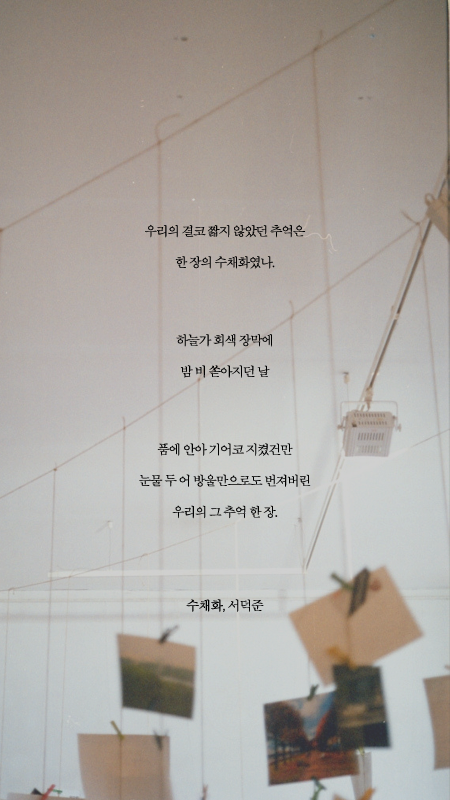 우리의 결코 짧지 않았던 추억은
한 장의 수채화였나.
하늘가 회색 장막에
밤 비 쏟아지던 날
품에 안아 기어코 지켰건만
눈물 두 어 방울만으로도 번져버린
우리의 그 추억 한 장.
수채화, 서덕준